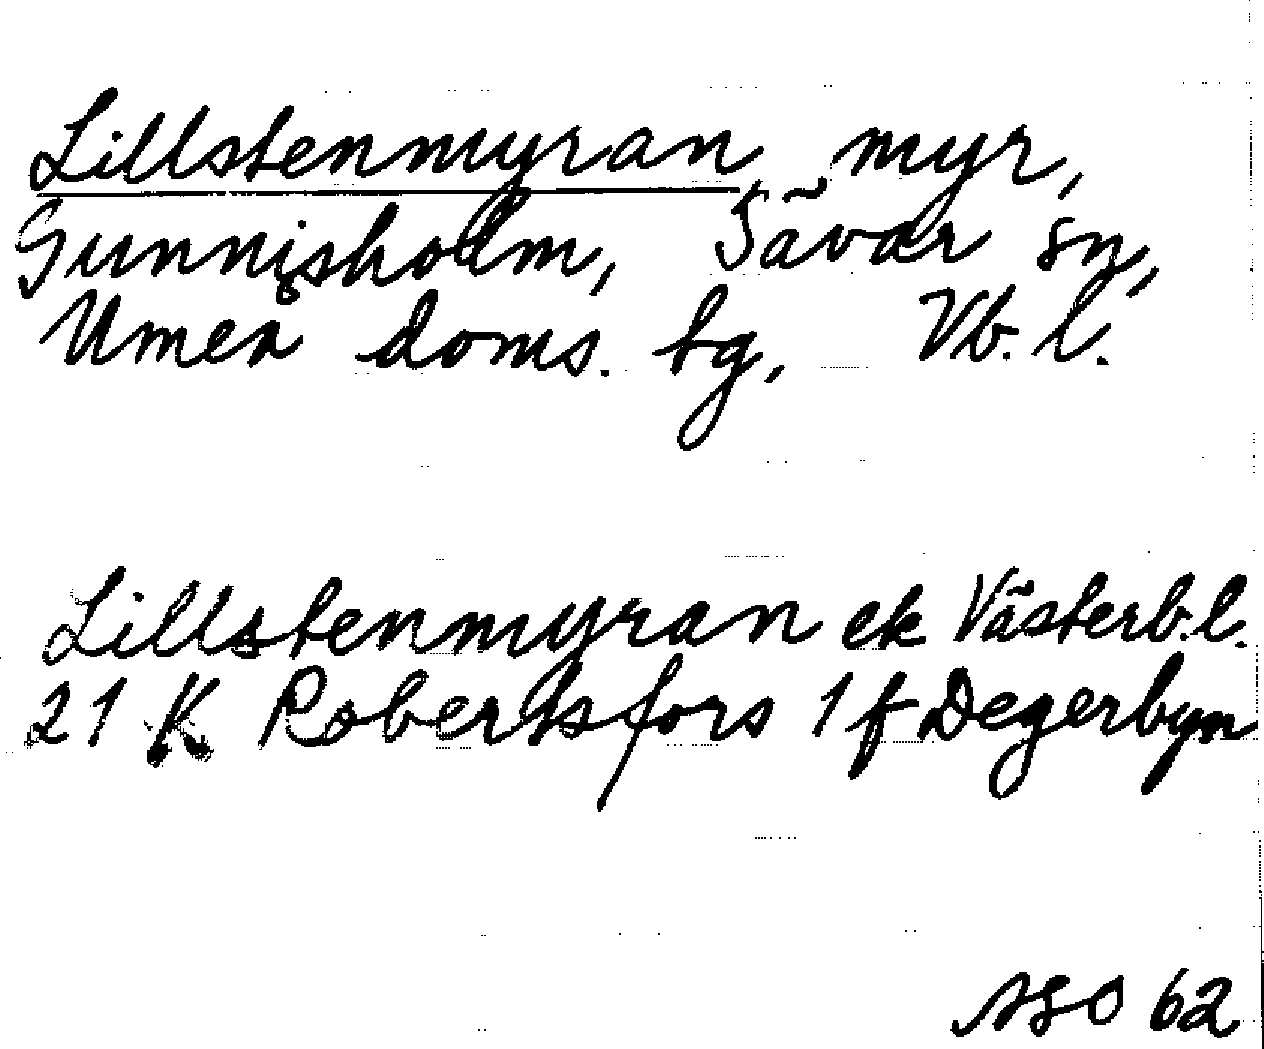 Lillstenmyran, myr,
Gunnisholm, Sävar sn,
Umeå doms. tg, Vb. l.
Lillstenmyran ek Västerb.l.
21 K Robertsfors 1 f Degerbyn
ASO 62